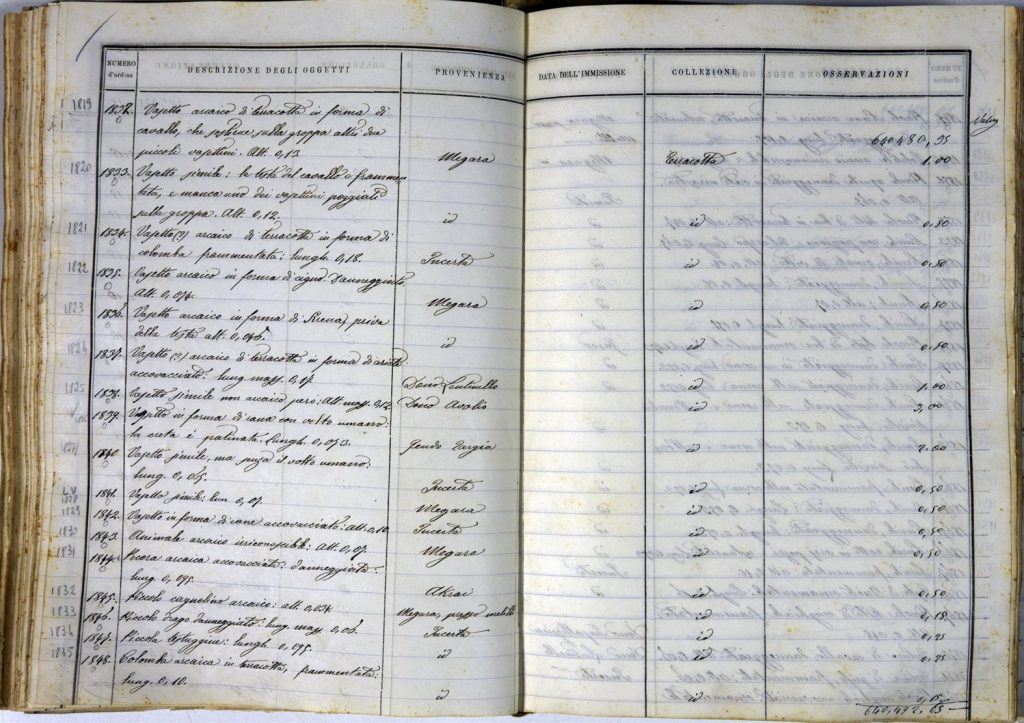 NUMERO d'ordine DESCRIZIONE DEGLI OGGETTI PROVENIENZA DATA DELL'IMMISSIONE COLLEZIONE OSSERVAZIONI
Valore
640480,35
1819 1832. Vasetto arcaico di terracotta in forma di
cavallo, che sostiene sulla groppa altri due
piccoli vasettini. Alt. 0,13. Megara Terracotta 1.00
1820 1833. Vasetto simile: la testa del cavallo è frammen
tata, e manca uno dei vasettini poggiati
sulla groppa. Alt. 0,12. id id 0,50
1821 1834. Vasetto (?) arcaico di terracotta in forma di
colomba frammentata: lungh. 0,18. Incerta id 0,50
1822 1835. Vasetto arcaico in forma di cigno. Danneggiato.
Alt. 0,074. Megara id 0,50
1823 1836. Vasetto arcaico in forma di Sirena, priva
della testa alt. 0,076. id id 0,50
1824 1837. Vasetto (?) arcaico di terracotta in forma di ariete
accovacciato: lung. mass. 0,17. Dono id 1.00
1825 1838. Vasetto simile non arcaico però: Alt. mass. 0,12. Dono Avolio id 3,00
1839. Vasetto in forma di rana con volto umano:
la creta è patinata. Lungh. 0,073. Feudo id 2.00
1840. Vasetto simile, ma senza il volto umano:
lung. 0,065. Incerta id 0,50
1841. Vasetto simile: lun 0,07. Megara id 0,50
1829 1842. Vasetto in forma di cane accovacciato: Alt. 0,10. Incerta id 0,50
1830 1843. Animale arcaico irriconoscibile: Alt. 0,07. Megara id 0,50
1831 1844. Pecora arcaica accovacciata: danneggiata:
lung. 0,095. Akrai id 0,50
1832 1845. Piccolo cagnolino arcaico: alt. 0,034 Megara, presso id 0,15
1833 1846. Piccolo drago danneggiato: lung. mass. 0,06. Incerta id 0,25
1834 1847. Piccola testuggine: lungh. 0,095. id id 0,25
1835 1848. Colomba arcaica in terracotta, frammentata:
lung. 0,10. id id 0,15
640,492.65